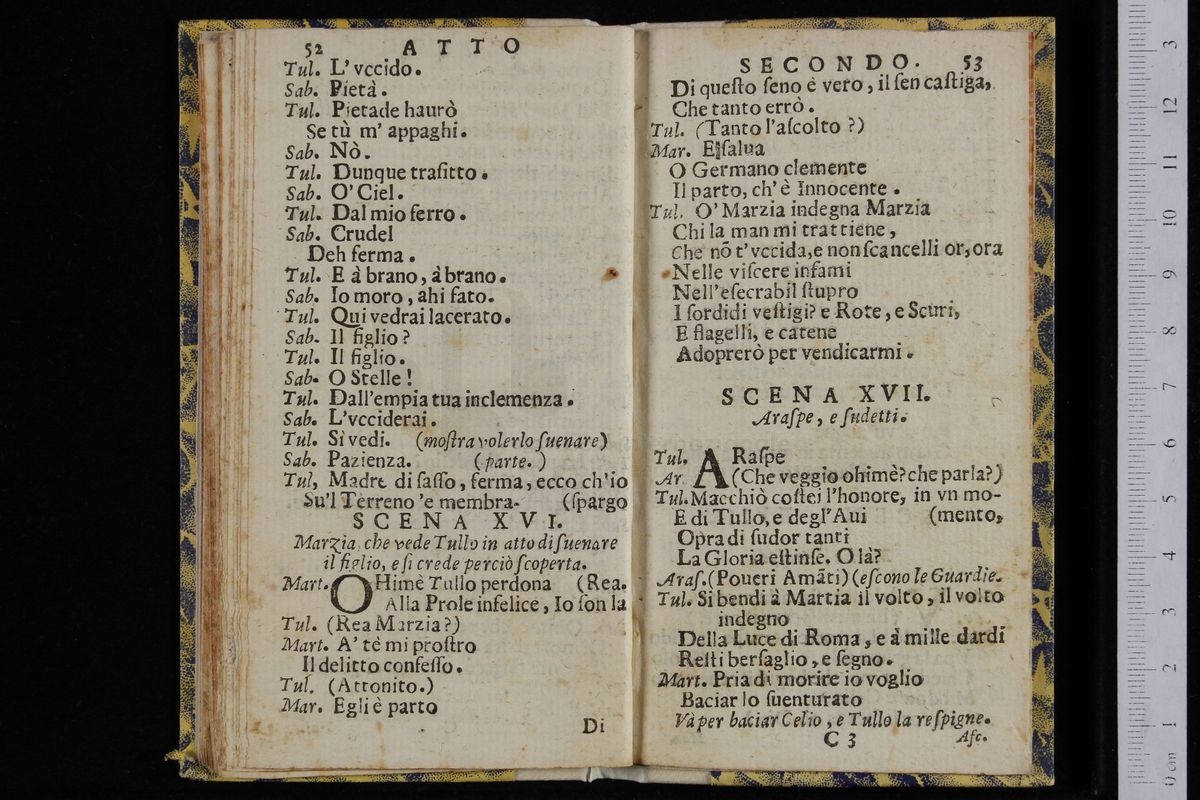 52 ATTO
Tul. L'vccido.
Sab. Pietà.
Tul. Pietade haurò
Se tù m'appaghi.
Sab. Nò.
Tul. Dunque trafitto.
Sab. O' Ciel.
Tul. Dal mio ferro.
Sab. Crudel
Deh ferma.
Tul. E à brano, à brano.
Sab. Io moro, ahi fato.
Tul. Qui vedrai lacerato.
Sab. Il figlio?
Tul. Il figlio.
Sab. O Stelle!
Tul. Dall'empia tua inclemenza.
Sab. L'vcciderai.
Tul. Sì vedi. (moſtra volerlo ſuenare)
Sab. Pazienza. (parte.)
Tul, Madre di ſaſſo, ferma, ecco ch'io
Su'l Terreno 'e membra. (ſpargo
SCENA XVI.
Marzia, che vede Tullo in atto di ſuenare
il figlio, e ſi crede perciò ſcoperta.
Mart. OHimè Tullo perdona (Rea.
Alla Prole infelice, Io ſon la
Tul. (Rea Marzia?)
Mart. A' tè mi proſtro
Il delitto confeſſo.
Tul. (Attonito.)
Mar. Egli è parto
Di
SECONDO. 53
Di queſto ſeno è vero, il ſen caſtiga,
Che tanto errò.
Tul. (Tanto l'aſcolto?)
Mar. E ſalua
O Germano clemente
Il parto, ch'è Innocente.
Tul. O' Marzia indegna Marzia
Chi la man mi trattiene,
Che nõ t'vccida, e non ſcancelli or, ora
Nelle viſcere infami
Nell'eſecrabil ſtupro
I ſordidi veſtigi? e Rote, e Scuri,
E flagelli, e catene
Adoprerò per vendicarmi.
SCENA XVII.
Araſpe, e ſudetti.
Tul. ARaſpe
Ar (Che veggio ohimè? che parla?)
Tul. Macchiò coſtei l'honore, in vn mo-
E di Tullo, e degl'Aui (mento,
Opra di ſudor tanti
La Gloria eſtinſe. O là?
Araſ. (Poueri Amãti) (eſcono le Guardie.
Tul. Si bendi à Martia il volto, il volto
indegno
Della Luce di Roma, e à mille dardi
Reſti berſaglio, e ſegno.
Mart. Pria di morire io voglio
Baciar lo ſuenturato
Và per baciar Celio, e Tullo la reſpigne.
C 3 Aſc.
3
12
11
10
9
8
7
6
5
4
3
2
1
0 cm